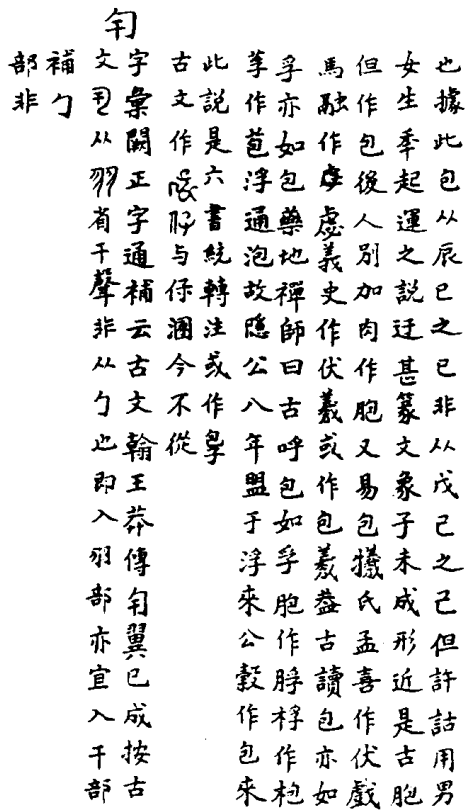 也據此包从辰巳之巳非从戊己之己但許詁用男
女生秊起運之説迂甚篆文象子未成形近是古胞
但作包後人別加肉作胞又易包犧氏孟喜作伏戲
馬融作虙羲史作伏羲或作包羲葢古讀包亦如
孚亦如包藥地禪師曰古呼包如孚胞作脬桴作枹
莩作苞浮通泡故隱公八年盟于浮來公穀作包來
此説是六書統轉注或作
古文作与俘溷今不從
字彙闕正字通補云古文翰王莽傳翼已成按古
文从羽省干聲非从勹也即入羽部亦宜入干部
補勹
部非